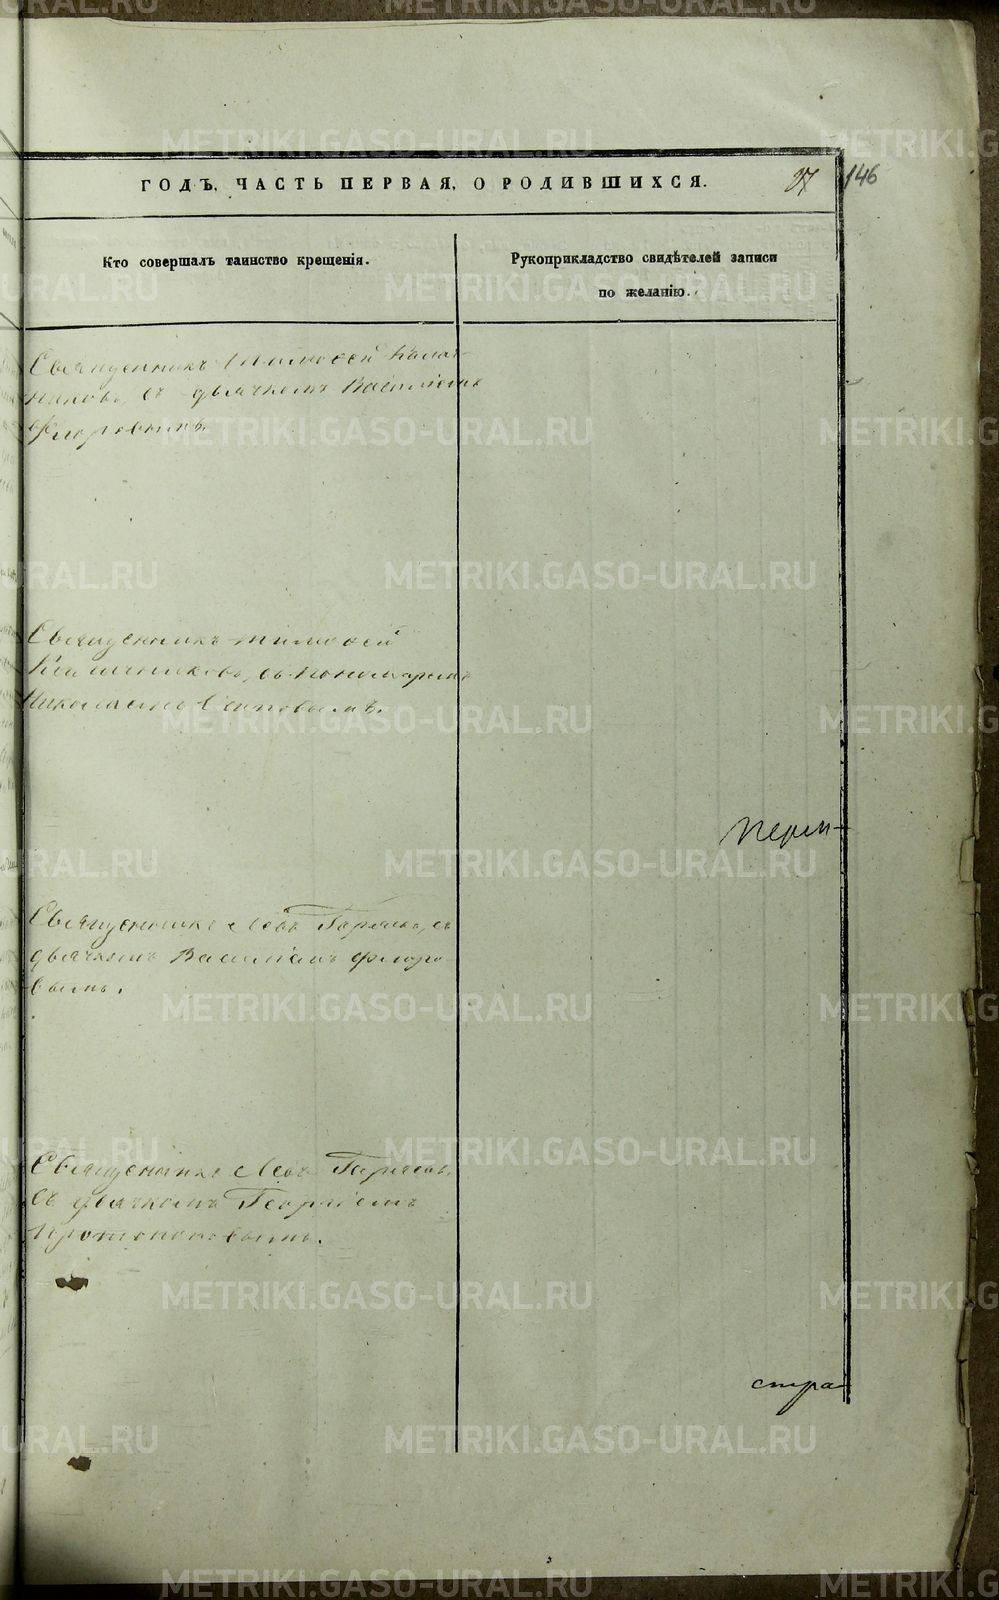 ГОДЪ, ЧАСТЬ ПЕРВАЯ, О РОДИВШИХСЯ. 27 146
Кто совершалъ таинство крещенія.
Рукоприкладство свидѣтелей записи
по желанію.
Священникъ Тимофей Калач-
никовъ, съ дьячкомъ Василіемъ
Флоровымъ.
Священникъ Тимофей
Калачниковъ, съ пономаремъ
Николаемъ Осиповымъ.
Перм-
Священникъ Левъ Гаряевъ, съ
дьячкомъ Василіемъ Флоро-
вымъ.
Священникъ Левъ Гаряевъ,
съ дьячкомъ Георгіемъ
Протопоповымъ.
стра
METRIKI.GASO-URAL.RU